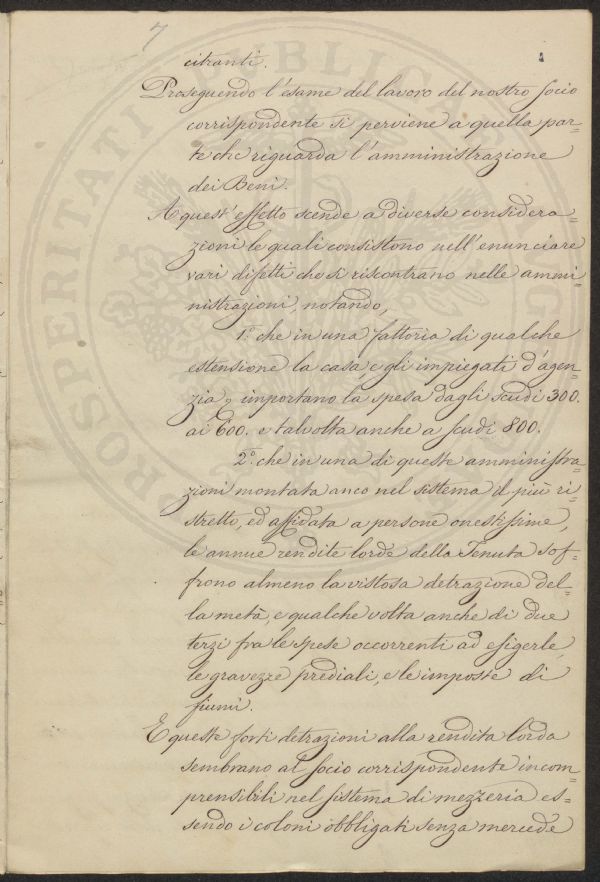 7
citranti.
Proseguendo l'esame del lavoro del nostro socio
corrispondente si perviene a quella par=
te che riguarda l'amministrazione
dei Beni.
A quest'effetto scende a diverse considera=
zioni le quali consistono nell'enunciare
vari difetti che si riscontrano nelle ammi=
nistrazioni, notando,
1.º che in una fattoria di qualche
estensione la casa, e gli impiegati d'agen=
zia, importano la spesa dagli scudi 300.
ai 600. e talvolta anche a scudi 800.
2.º che in una di queste amministra=
zioni montata anco nel sistema il più ri=
stretto, ed affidata a persone onestissime,
le annue rendite lorde della Tenuta sof=
frono almeno la vistosa detrazione del=
la metà, e qualche volta anche di due
terzi fra le spese occorrenti ad esigerle,
le gravezze prediali, e le imposte di
fiumi.
E queste forti detrazioni alla rendita lorda
sembrano al socio corrispondente incom=
prensibili nel sistema di mezzeria es=
sendo i coloni obbligati senza mercede
PROSPERITATI PUBLICAE